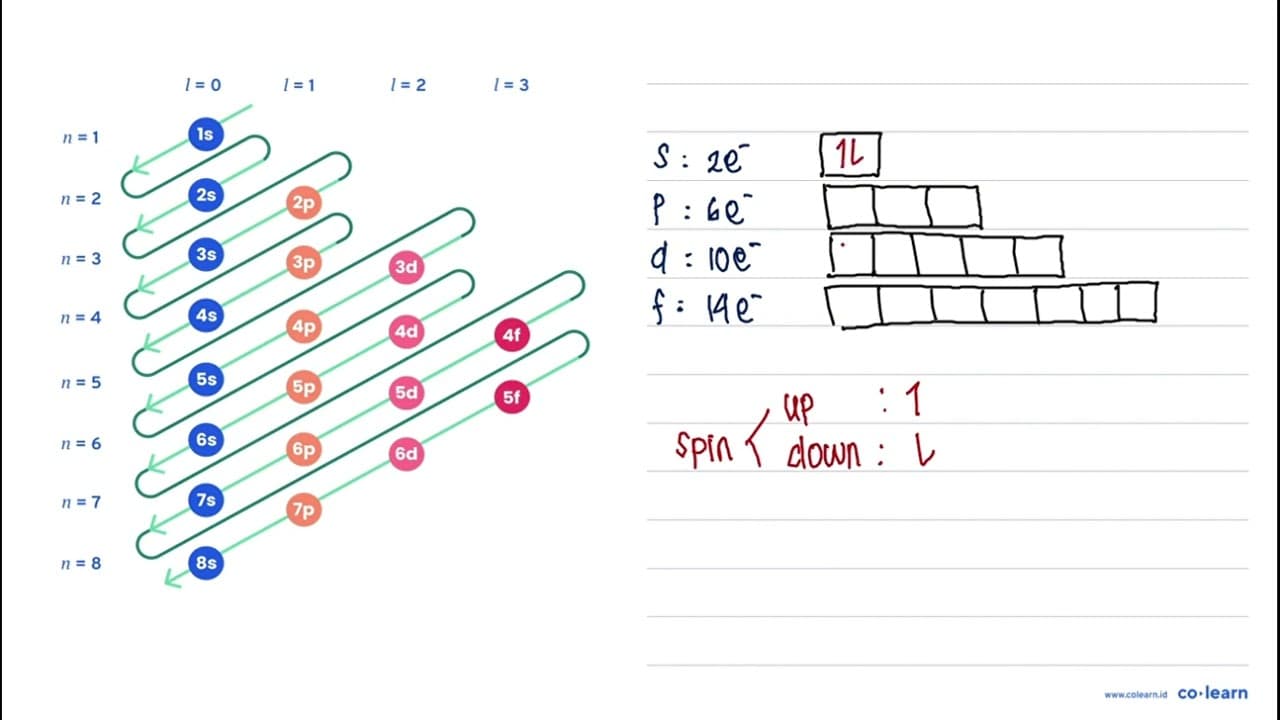 l = 0 l = 1 l = 2 l = 3
n = 1 1s
n = 2 2s 2p
n = 3 3s 3p 3d
n = 4 4s 4p 4d 4f
n = 5 5s 5p 5d 5f
n = 6 6s 6p 6d
n = 7 7s 7p
n = 8 8s
s : 2e⁻ 1L
p : 6e⁻
d : 10e⁻
f : 14e⁻
spin
up : 1
down : L
www.colearn.id co·learn